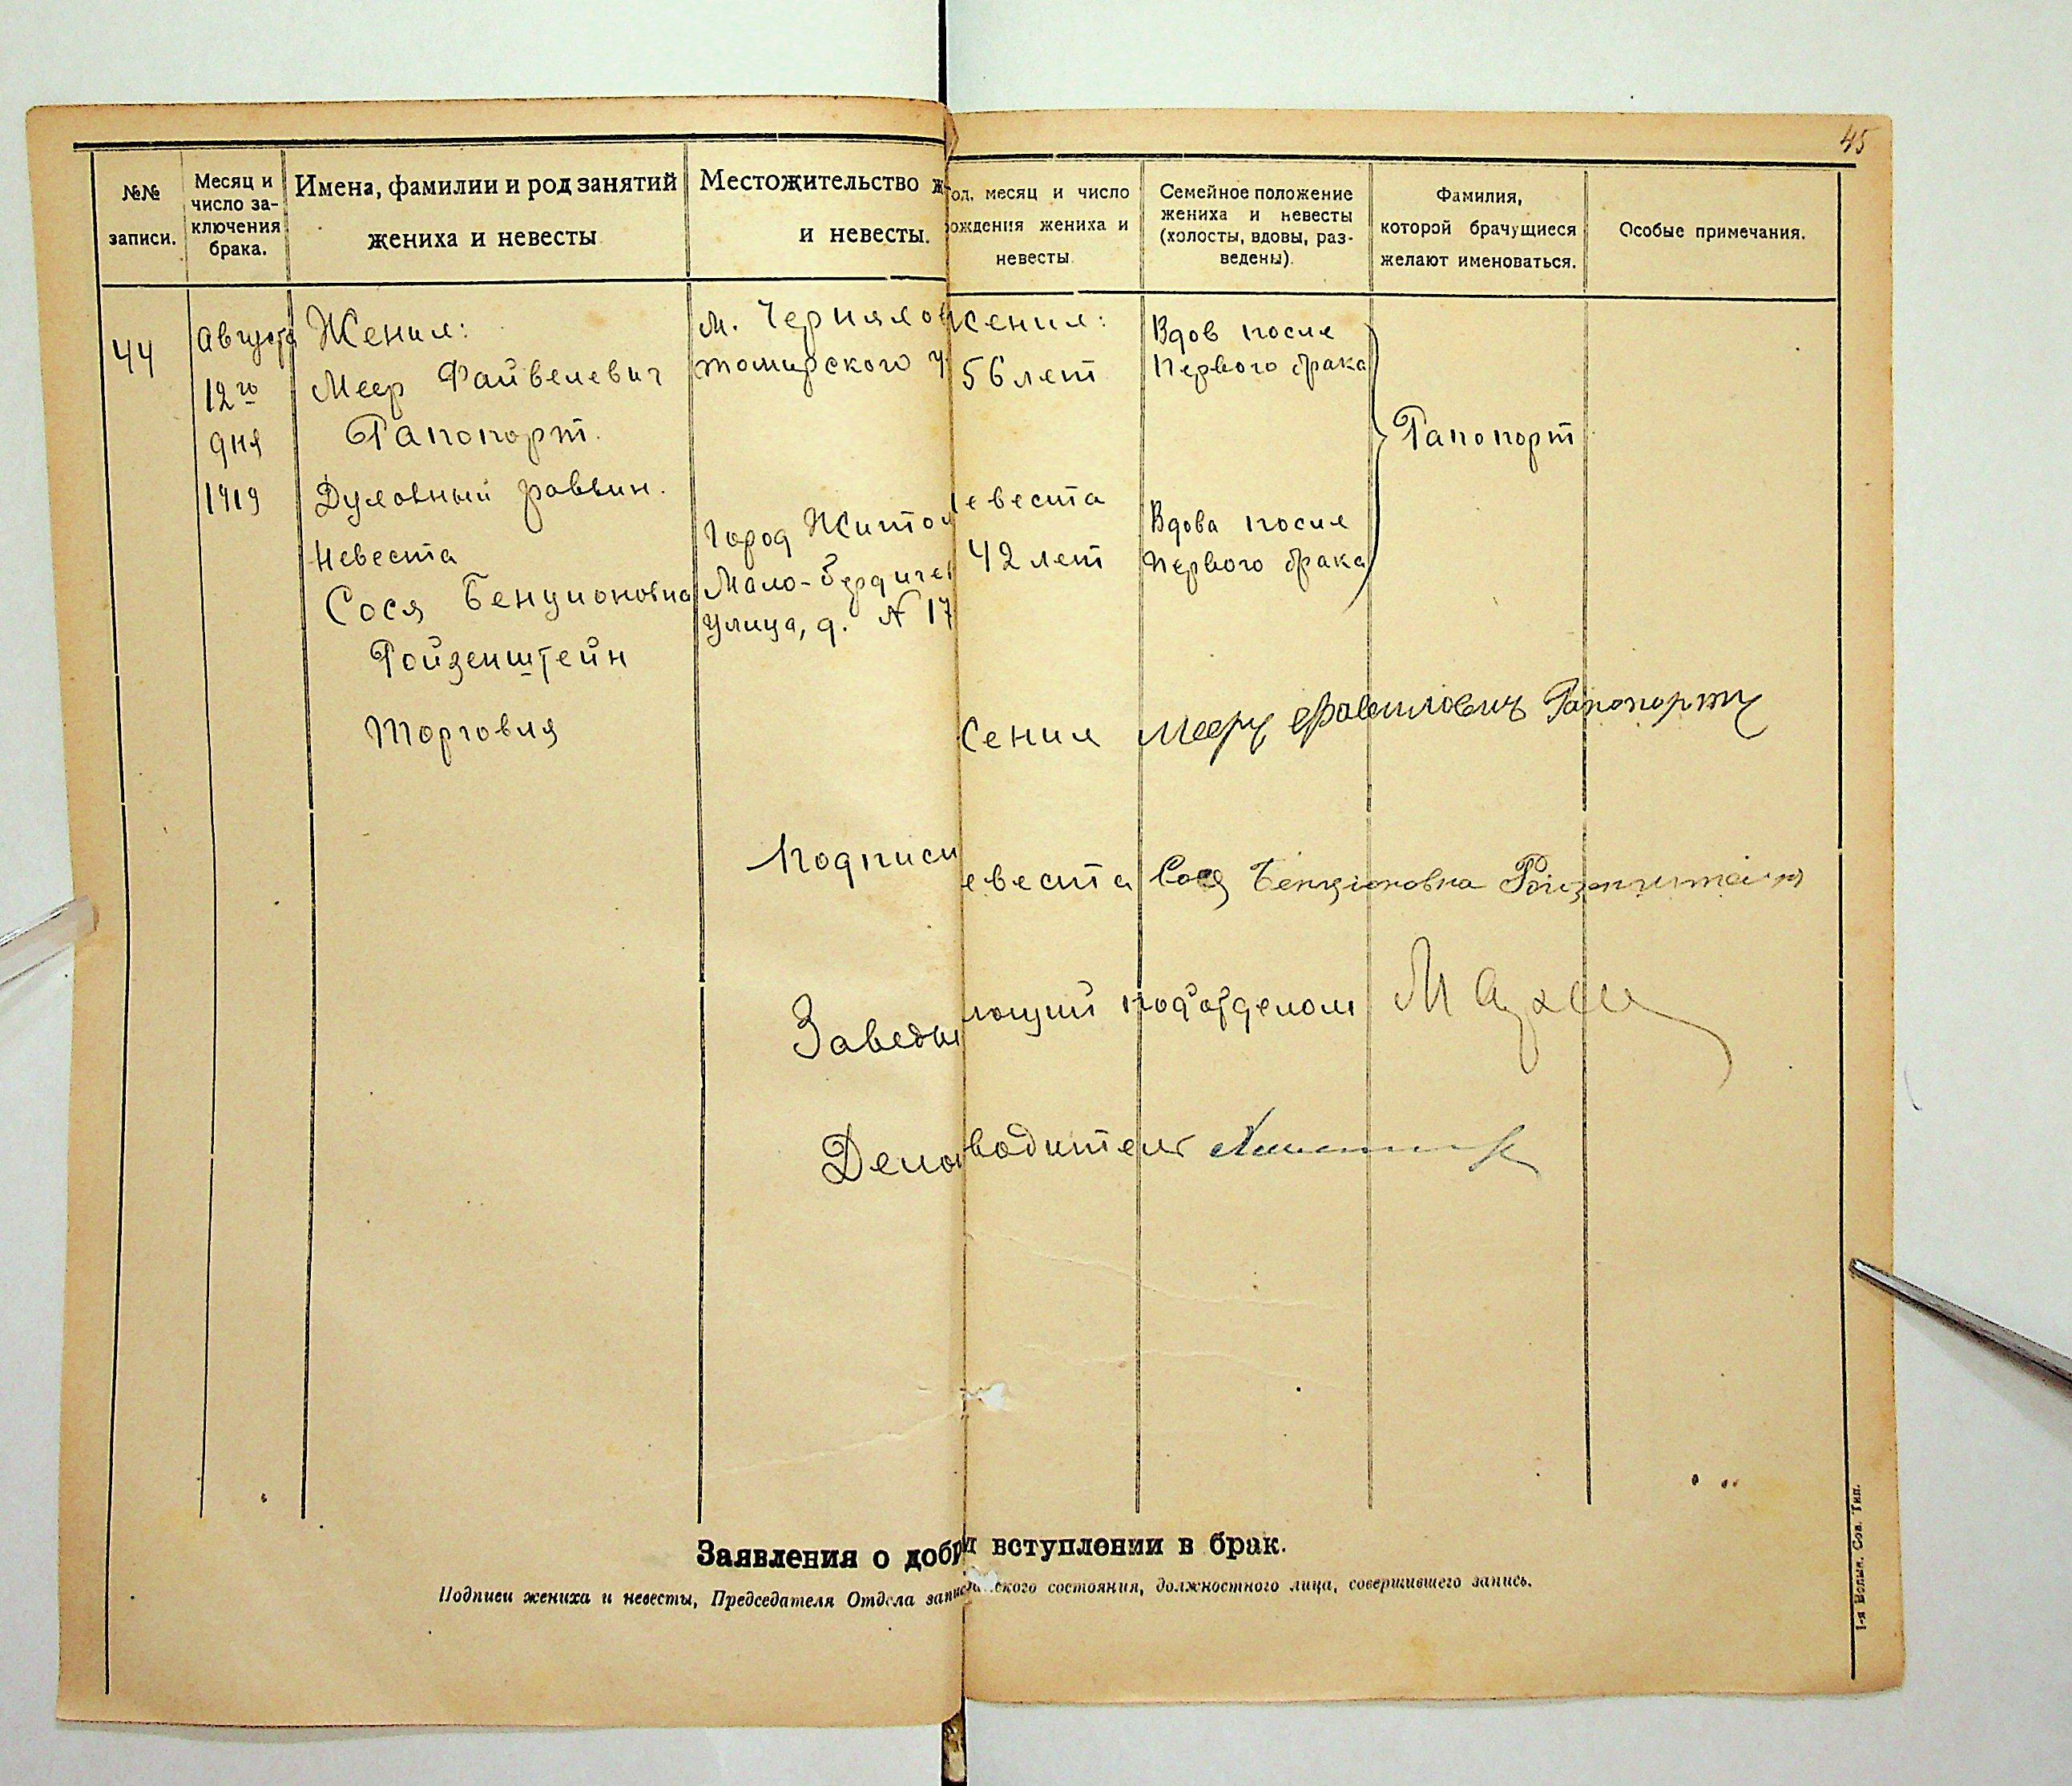 45
№№ записи.
Месяц и число за-
ключения брака.
Имена, фамилии и род занятий
жениха и невесты
Местожительство ж
и невесты.
од, месяц и число
ождения жениха и
невесты.
Семейное положение
жениха и невесты
(холосты, вдовы, раз-
ведены).
Фамилия,
которой брачущиеся
желают именоваться.
Особые примечания.
44
Августа
12го
дня
1919
Жених:
Меер Файвелевич
Рапопорт.
Духовный раввин.
Невеста
Сося Бенционовна
Ройзенштейн
Торговля
м. Черняхов
томирского у
Город Житом
Мало-Бердичев
улица, д. № 17
Жених:
56 лет
евеста
42 лет
Вдов после
Первого брака
Вдова после
Первого брака
Рапопорт
Подписи
жених Меер Рапопорт
евеста Сося Бенционовна Ройзенштейн
Заведы
ющий под'отделом
Дело
водитель
Заявления о доб
и вступлении в брак.
Подписи жениха и невесты, Председателя Отдела запис
ского состояния, должностного лица, совершившего запись.
1-я Волын. Сов. Тип.